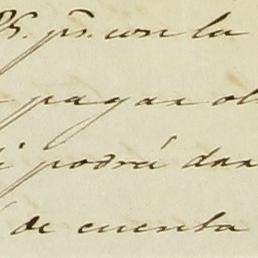 ps. con la
pagar
podrá dar
de cuenta